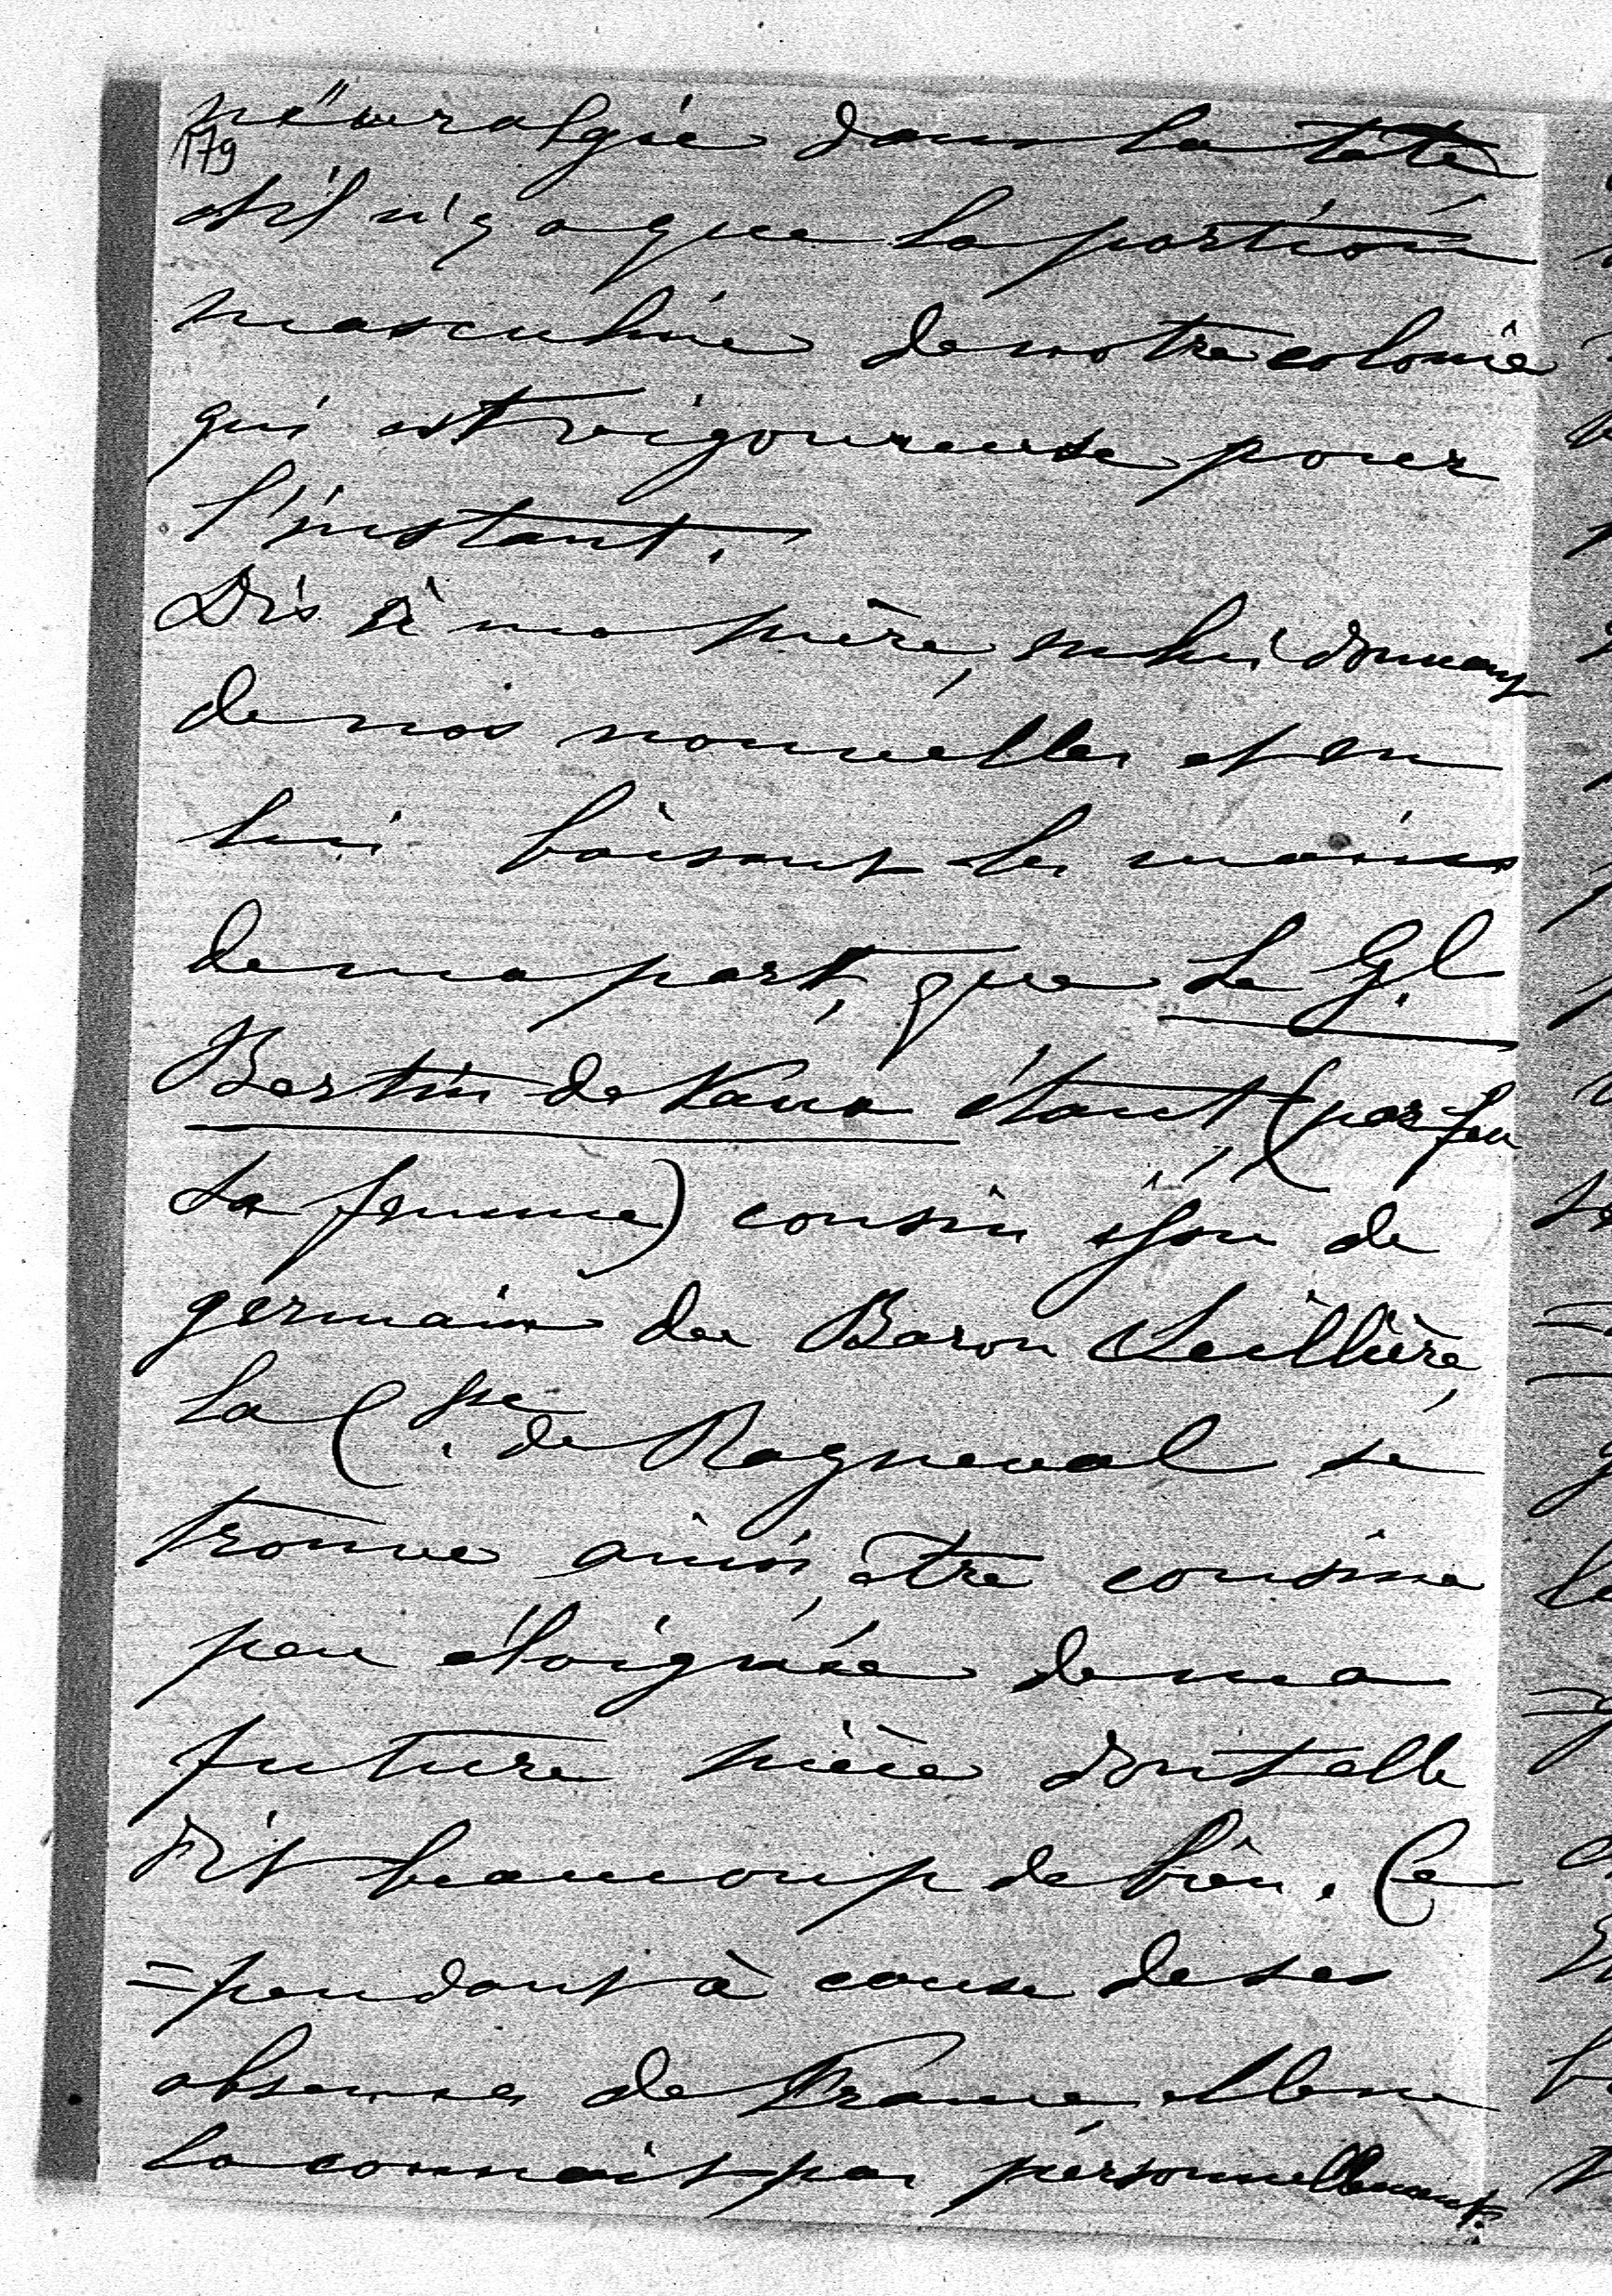 névralgie dans la tête
179
et il n'y a que la portion
masculine de notre colonie
qui est vigoureuse pour
l'instant.
Dis à ma mère, en lui donnant
de nos nouvelles et en
lui baisant les mains
de ma part, que le Gl.
Bertin de Vaux étant (par feu
sa femme) cousin issu de
germain du Baron Seillière,
la Csse. de Rayneval se
trouve ainsi, être cousine
peu éloignée de ma
future nièce dont elle
dit beaucoup de bien. Ce
=pendant à cause de ses
absences de France, elle ne
la connait pas personnellement.